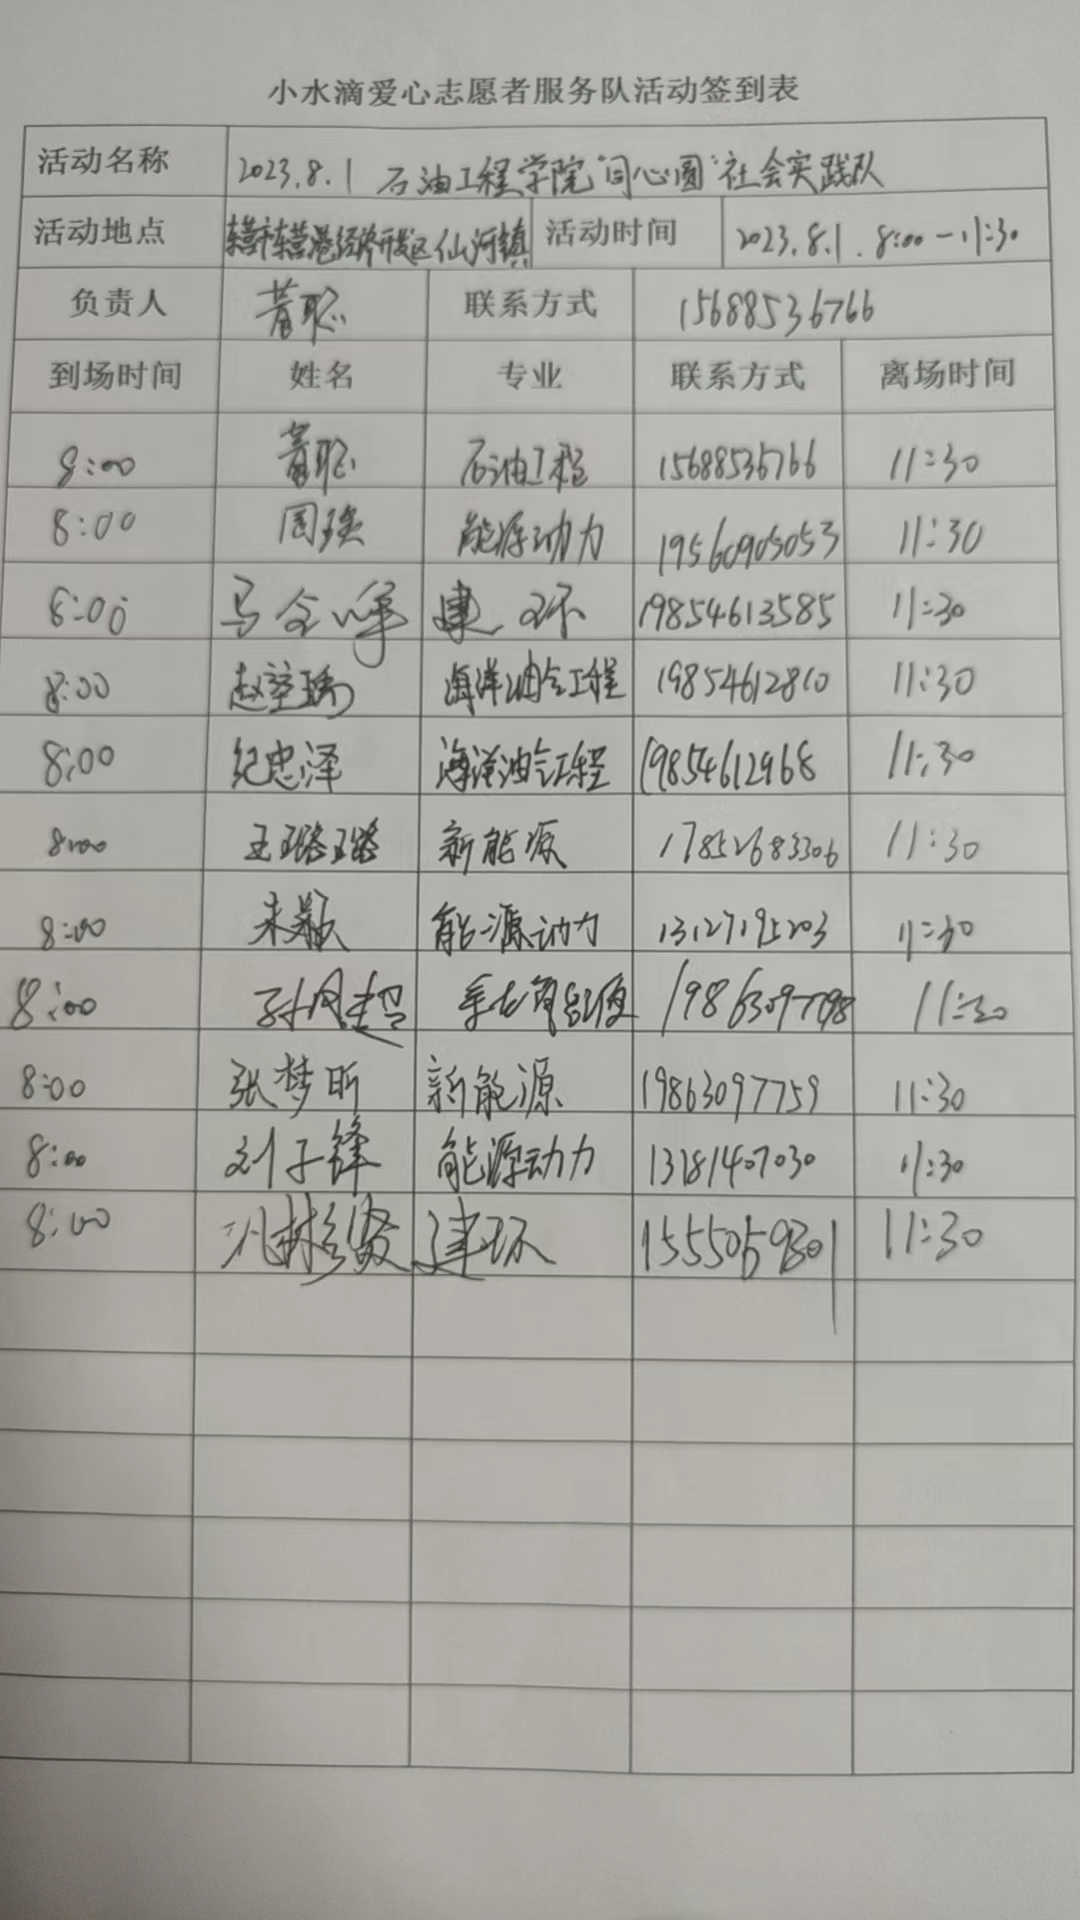 小水滴爱心志愿者服务队活动签到表
活动名称 2023.8.1 石油工程学院"同心圆"社会实践队
活动地点 东营市东营港经济开发区仙河镇 活动时间 2023.8.1. 8:00-11:30
负责人 董聪 联系方式 15688536766
到场时间 姓名 专业 联系方式 离场时间
8:00 董聪 石油工程 15688536766 11:30
8:00 周瑛 能源动力 19560905053 11:30
8:00 马全 建环 19854613585 11:30
8:00 赵 海洋油气工程 19854612810 11:30
8:00 纪忠泽 海洋油气工程 19854612968 11:30
8:00 王璐璐 新能源 17852683306 11:30
8:00 朱 能源动力 13127195203 11:30
8:00 孙凤超 11:30
8:00 张梦昕 新能源 19863097759 11:30
8:00 刘子锋 能源动力 13181407030 11:30
8:00 建环 11:30